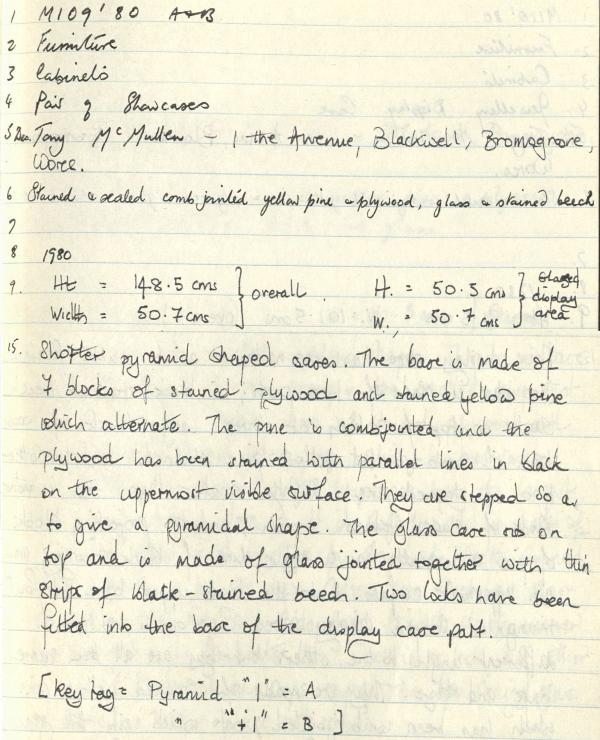 1 M109'80 A+B
2 Furniture
3 Cabinets
4 Pair of Showcases
5 Des. Tony McMullen – 1 the Avenue, Blackwell, Bromsgrove,
Worcs.
6 Stained & sealed comb jointed yellow pine & plywood, glass & stained beech
7
8 1980
9. Ht = 148.5 cms } overall. H. = 50.5 cms } Glazed display area
Width = 50.7cms W. = 50.7 cms
15. Shorter pyramid shaped cases. The base is made of
7 blocks of stained plywood and stained yellow pine
which alternate. The pine is combjointed and the
plywood has been stained with parallel lines in black
on the uppermost visible surface. They are stepped so as
to give a pyramidal shape. The glass case is on
top and is made of glass jointed together with thin
strips of black-stained beech. Two locks have been
fitted into the base of the display case part.
[key tag = Pyramid "1" = A
" "+1" = B ]